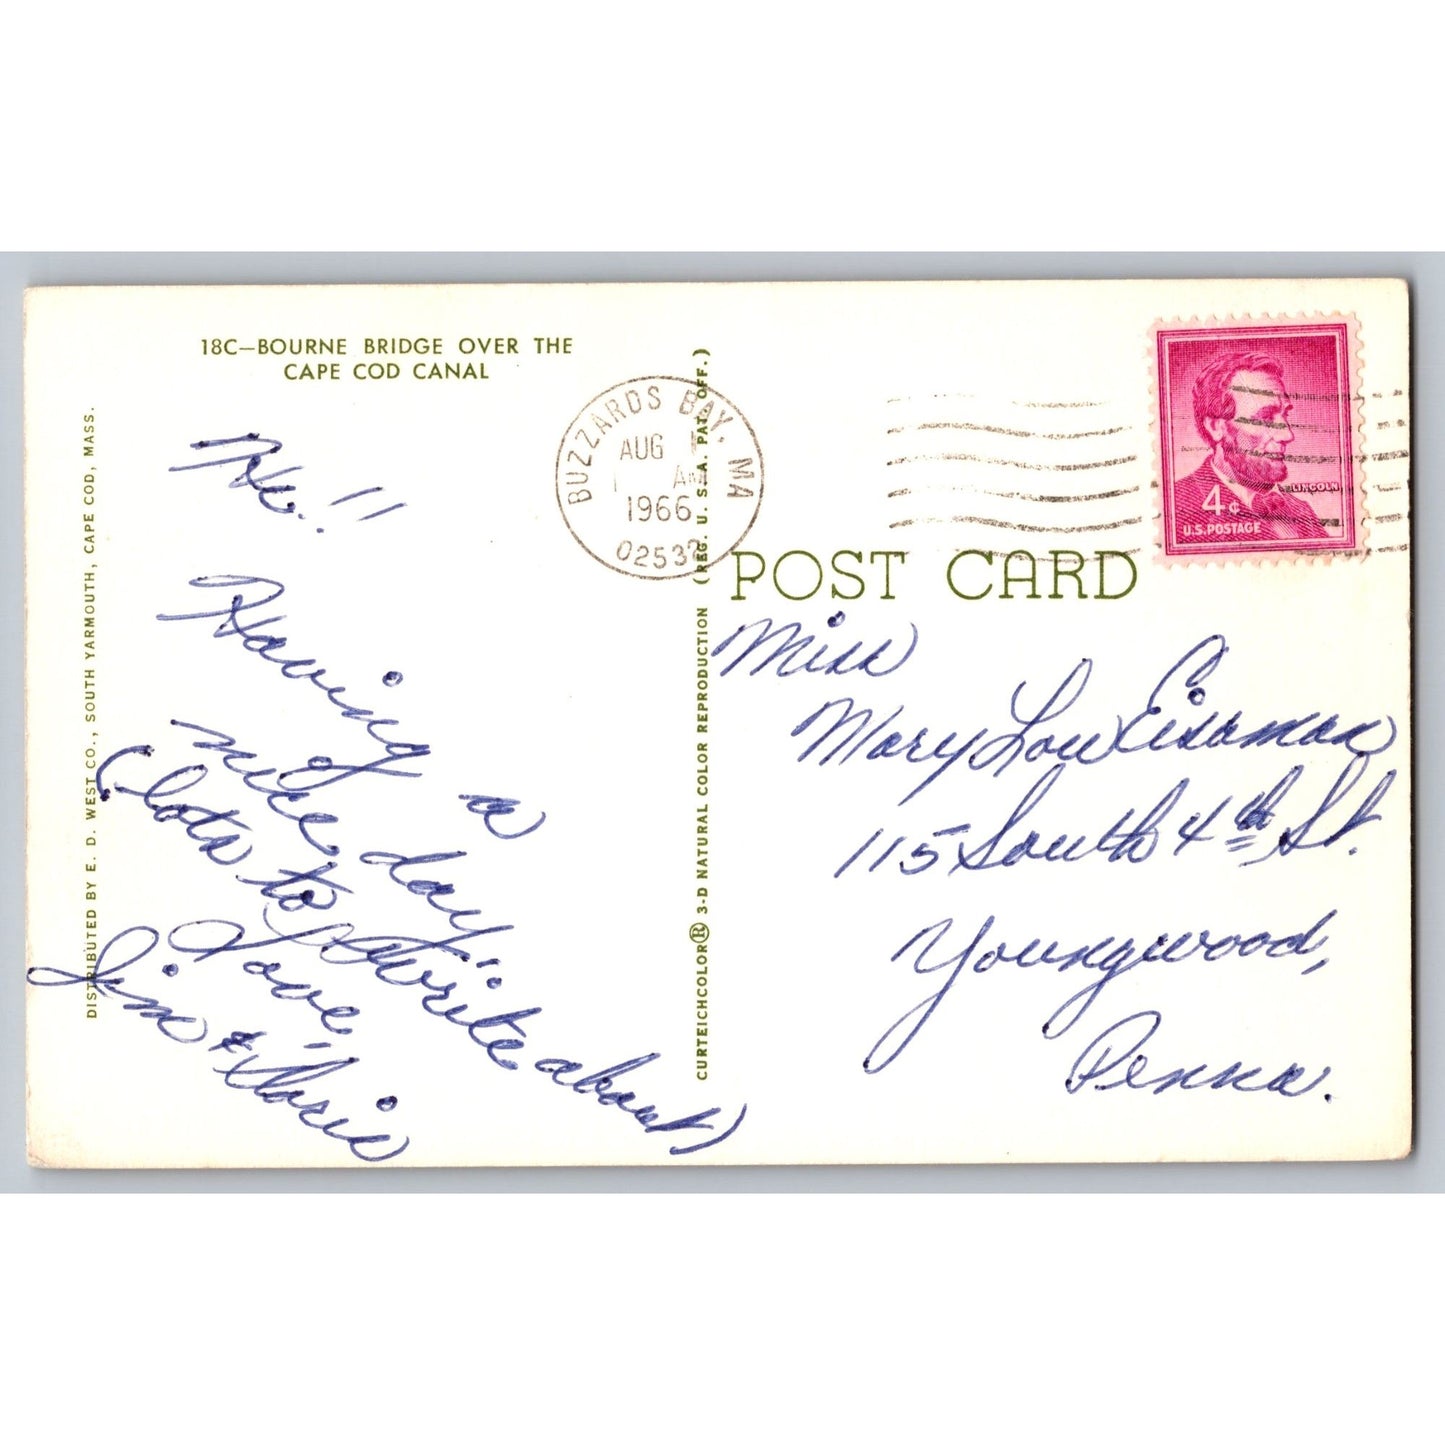 18C—BOURNE BRIDGE OVER THE
CAPE COD CANAL
DISTRIBUTED BY E. D. WEST CO., SOUTH YARMOUTH, CAPE COD, MASS.
Hi!!
Having a
nice day,
(Lots to write about)
Love,
Jim & Marie
CURTEICHCOLOR® 3-D NATURAL COLOR REPRODUCTION (REG. U. S. A. PAT. OFF.)
BUZZARDS BAY, MA
AUG
AM
1966
02532
LINCOLN
4¢
U.S. POSTAGE
POST CARD
Miss
Mary Lou Eisaman
115 South 4th St.
Youngwood,
Penna.